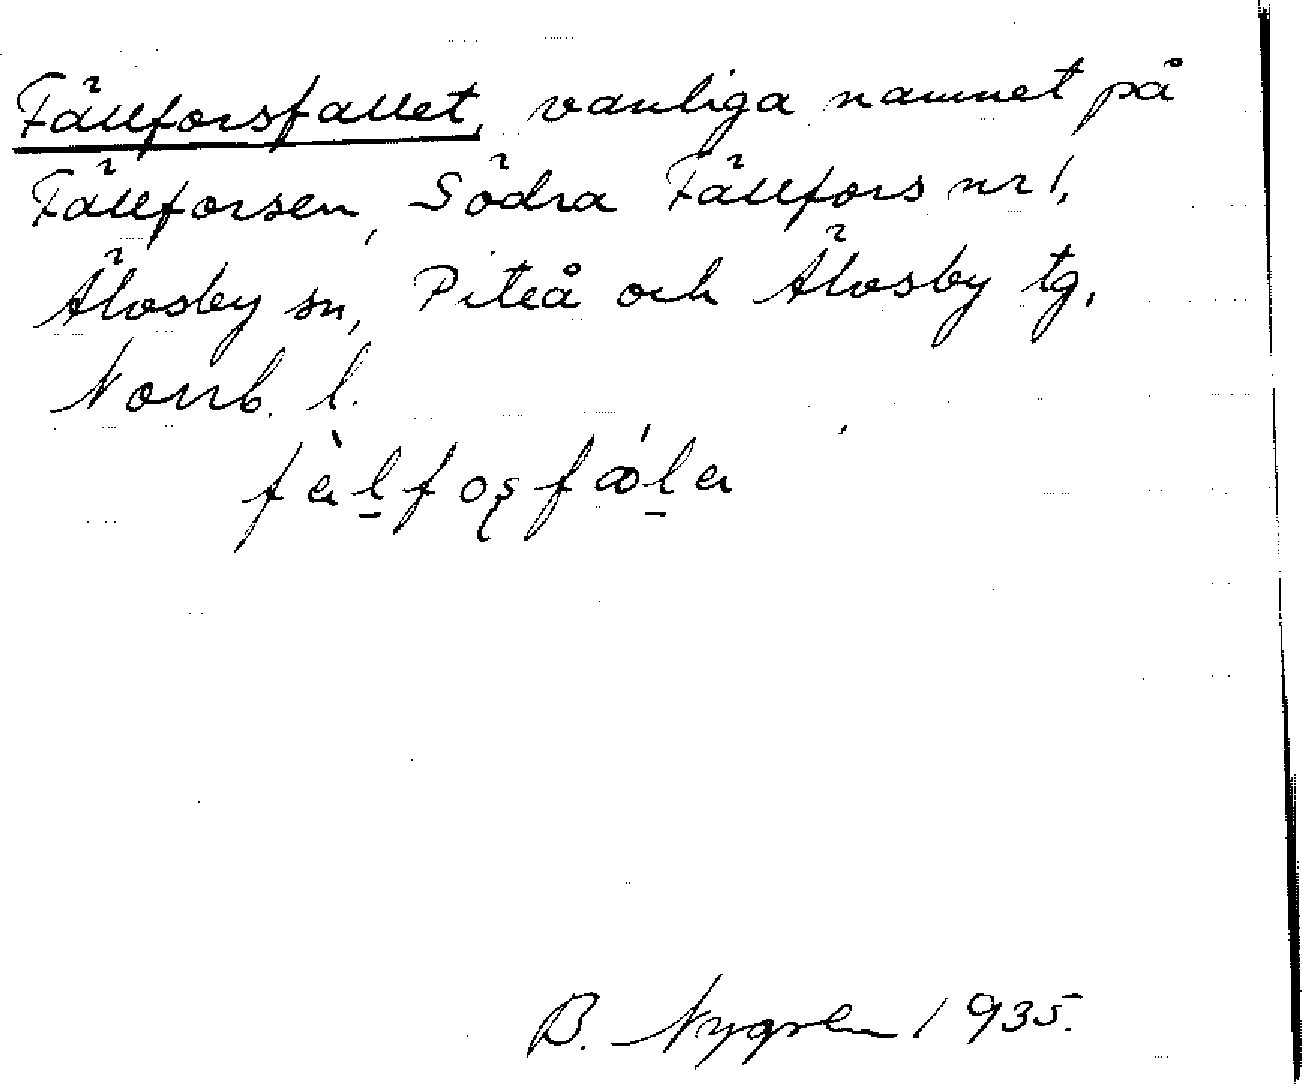 Fällforsfallet, vanliga namnet på
Fällforsen, Södra Fällfors nr 1,
Älvsby sn, Piteå och Älvsby tg,
Norrb. l.
B. Nygren 1935.